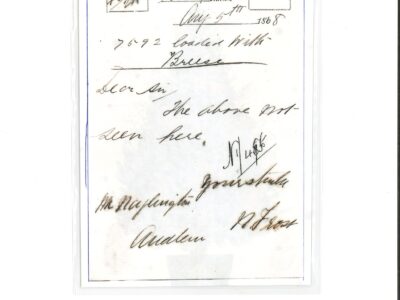 Aug 5th 1868
7592 loaded with
Breese
Dear Sir
The above not
seen here.
Yours truly
Mr Naylington
Audlem N Frost